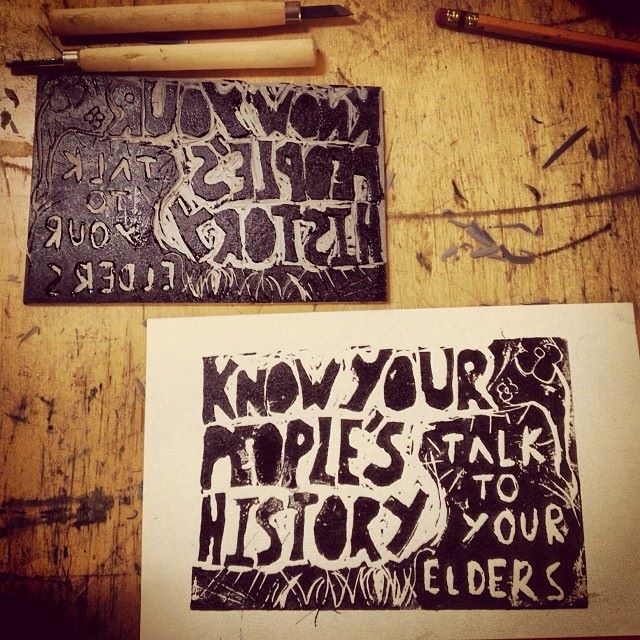 KNOW YOUR
PEOPLE'S
HISTORY
TALK
TO
YOUR
ELDERS
KNOW YOUR
PEOPLE'S
HISTORY
TALK
TO
YOUR
ELDERS